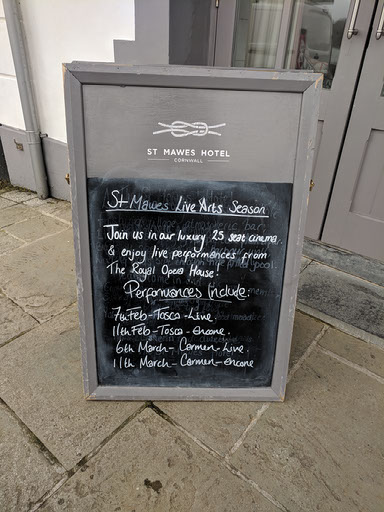 ST MAWES HOTEL
CORNWALL
St Mawes Live Arts Season
Join us in our luxury 25 seat cinema
& enjoy live performances from
The Royal Opera House!
Performances Include:
7th Feb - Tosca - Live.
11th Feb - Tosca - encore.
6th March - Carmen - Live.
11th March - Carmen - encore